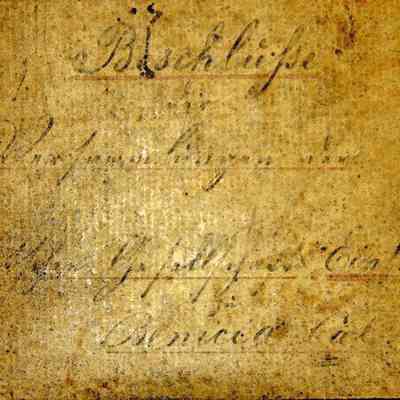 Beschlüße
der
Versammlungen der
Gesellschaft
zu
Benicia Cal